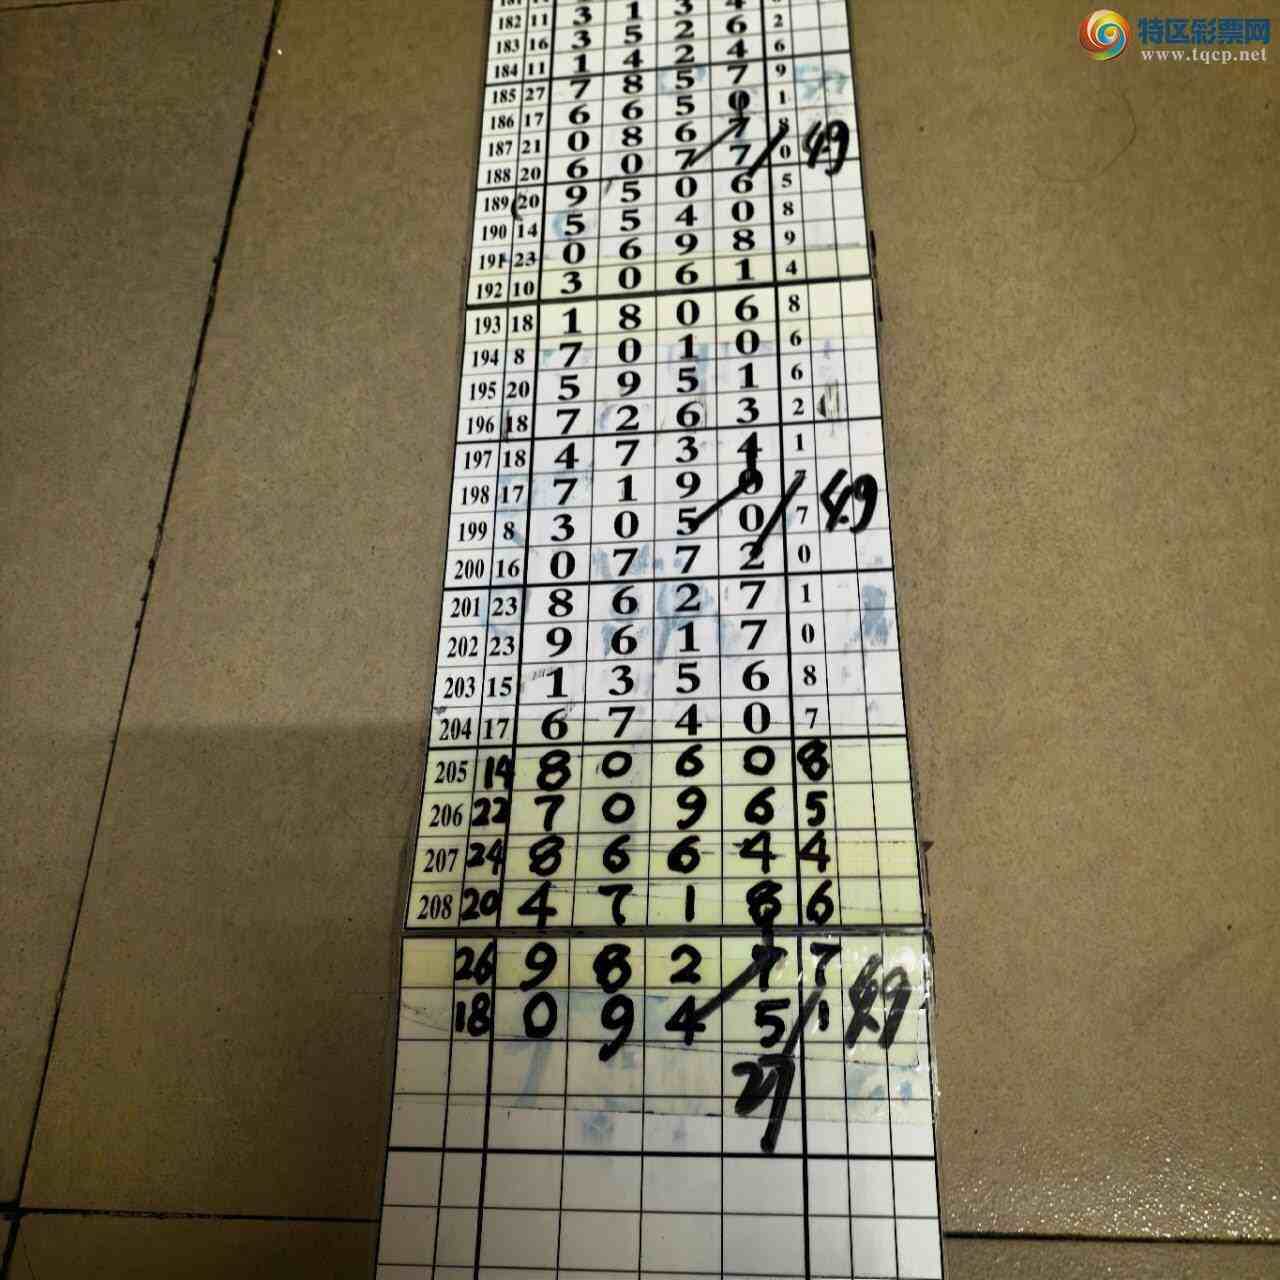 特区彩票网
www.tqcp.net
182 11 3 1 3 4
183 16 3 5 2 6 2
184 11 1 4 2 4 6
185 27 7 8 5 7 9
186 17 6 6 5 0 1
187 21 0 8 6 7 8 49
188 20 6 0 7 7 0
189 20 9 5 0 6 5
190 14 5 5 4 0 8
191 23 0 6 9 8 9
192 10 3 0 6 1 4
193 18 1 8 0 6 8
194 8 7 0 1 0 6
195 20 5 9 5 1 6
196 18 7 2 6 3 2
197 18 4 7 3 4 1
198 17 7 1 9 0 7 49
199 8 3 0 5 0 7
200 16 0 7 7 2 0
201 23 8 6 2 7 1
202 23 9 6 1 7 0
203 15 1 3 5 6 8
204 17 6 7 4 0 7
205 14 8 0 6 0 8
206 22 7 0 9 6 5
207 24 8 6 6 4 4
208 20 4 7 1 8 6
26 9 8 2 7 7
18 0 9 4 5 1 49
27